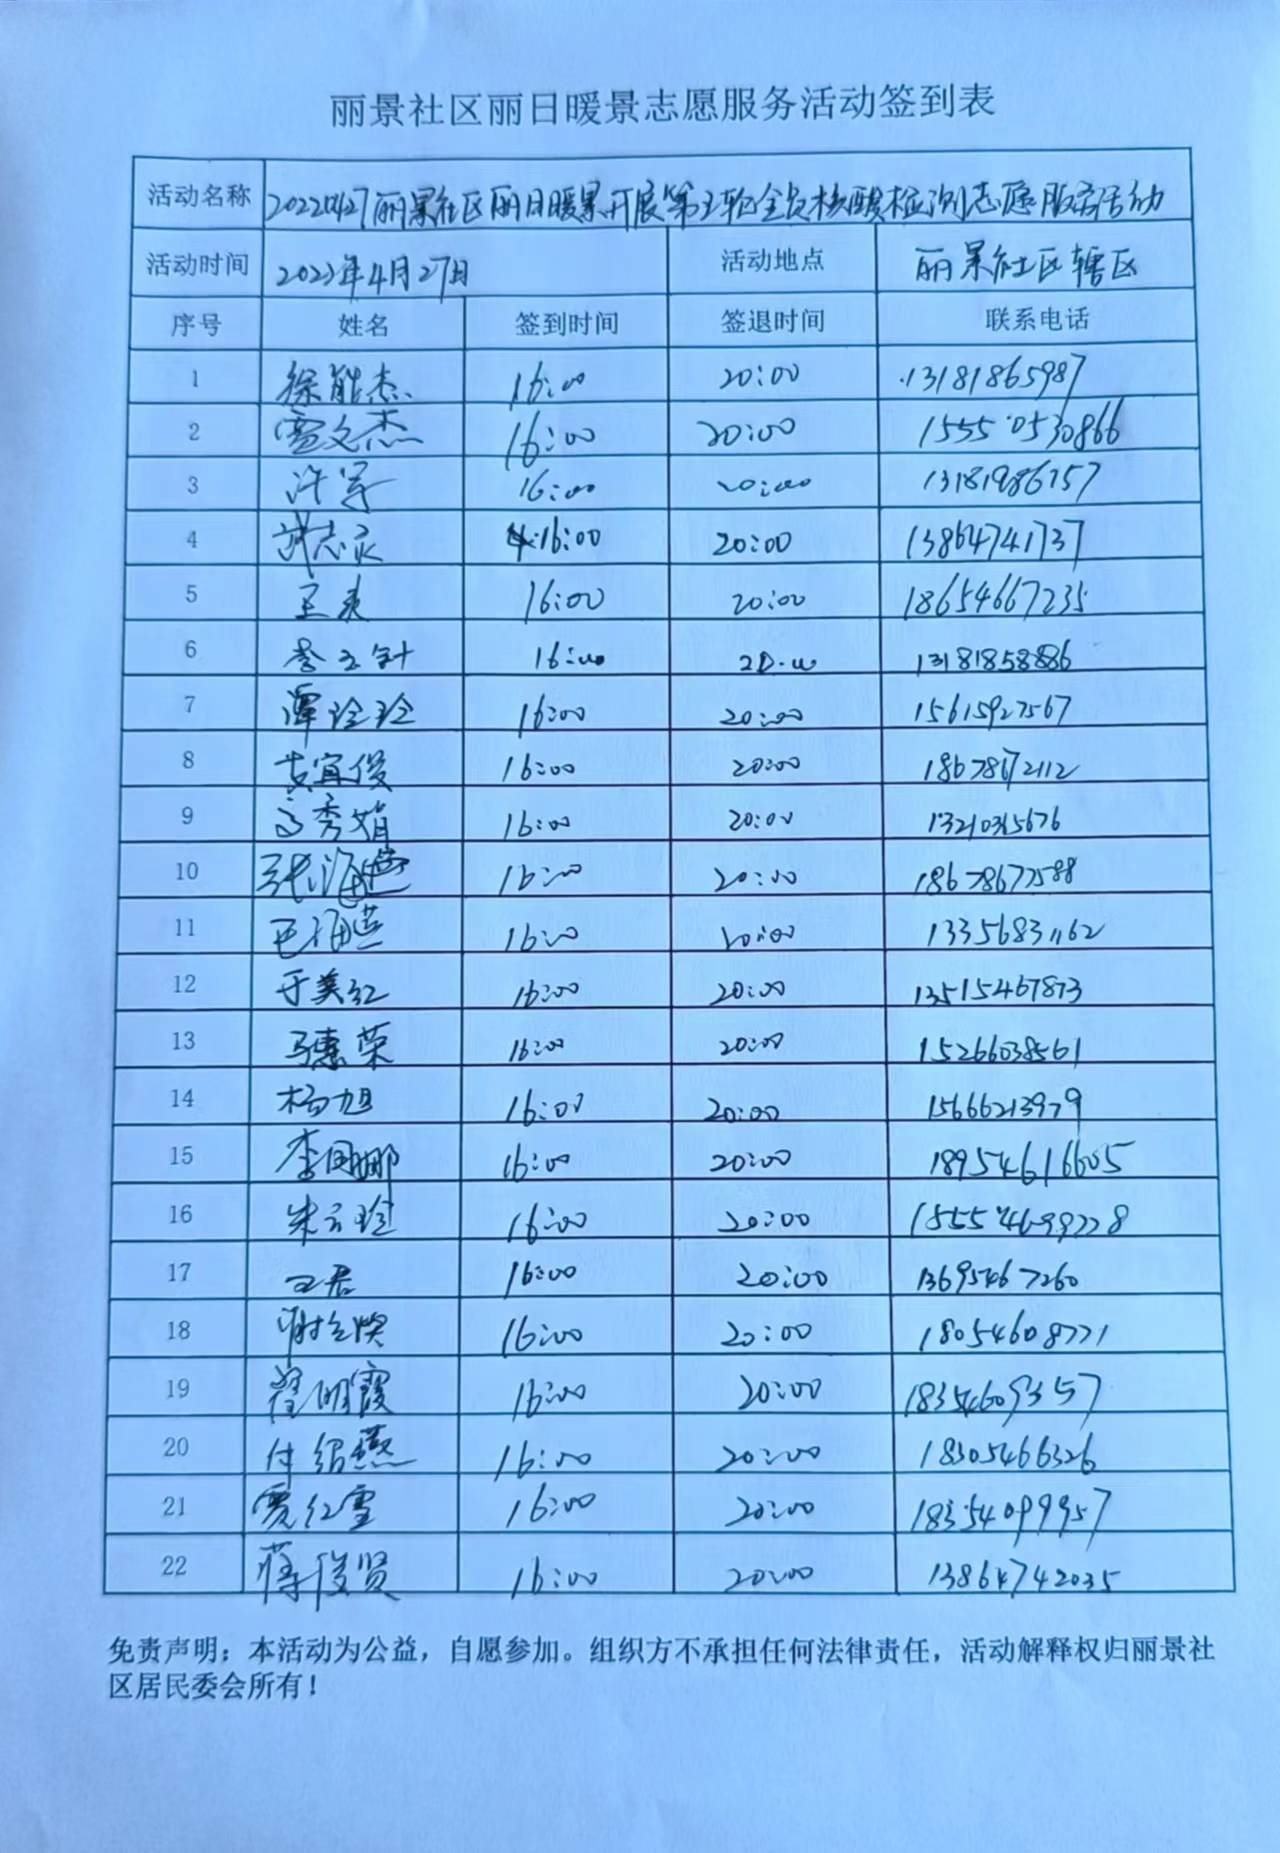 丽景社区丽日暖景志愿服务活动签到表
活动名称 20220427丽景社区丽日暖景开展第五轮全员核酸检测志愿服务活动
活动时间 2022年4月27日 活动地点 丽景社区辖区
序号 姓名 签到时间 签退时间 联系电话
1 徐能杰 16:00 20:00 13181865987
2 雷文杰 16:00 20:00 15550530866
3 许军 16:00 20:00 13181986757
4 志 16:00 20:00 13864741737
5 王 16:00 20:00 18654667235
6 李玉针 16:00 20:00 13181858886
7 潭玲玲 16:00 20:00 15615927567
8 宜俊 16:00 20:00 18678672112
9 高秀娟 16:00 20:00 13210315676
10 张海燕 16:00 20:00 18678677588
11 王海莲 16:00 20:00 13356831162
12 于美红 16:00 20:00 13515467873
13 马惠荣 16:00 20:00 15266038561
14 杨旭 16:00 20:00 15666213979
15 李国娜 16:00 20:00 18954616605
16 朱云玲 16:00 20:00 15554699778
17 王君 16:00 20:00 13695467260
18 谢立焕 16:00 20:00 18054608771
19 翟明霞 16:00 20:00 18354609357
20 付绍燕 16:00 20:00 18305466326
21 贾红雪 16:00 20:00 18354099957
22 蒋俊贤 16:00 20:00 13864742035
免责声明：本活动为公益，自愿参加。组织方不承担任何法律责任，活动解释权归丽景社
区居民委会所有！